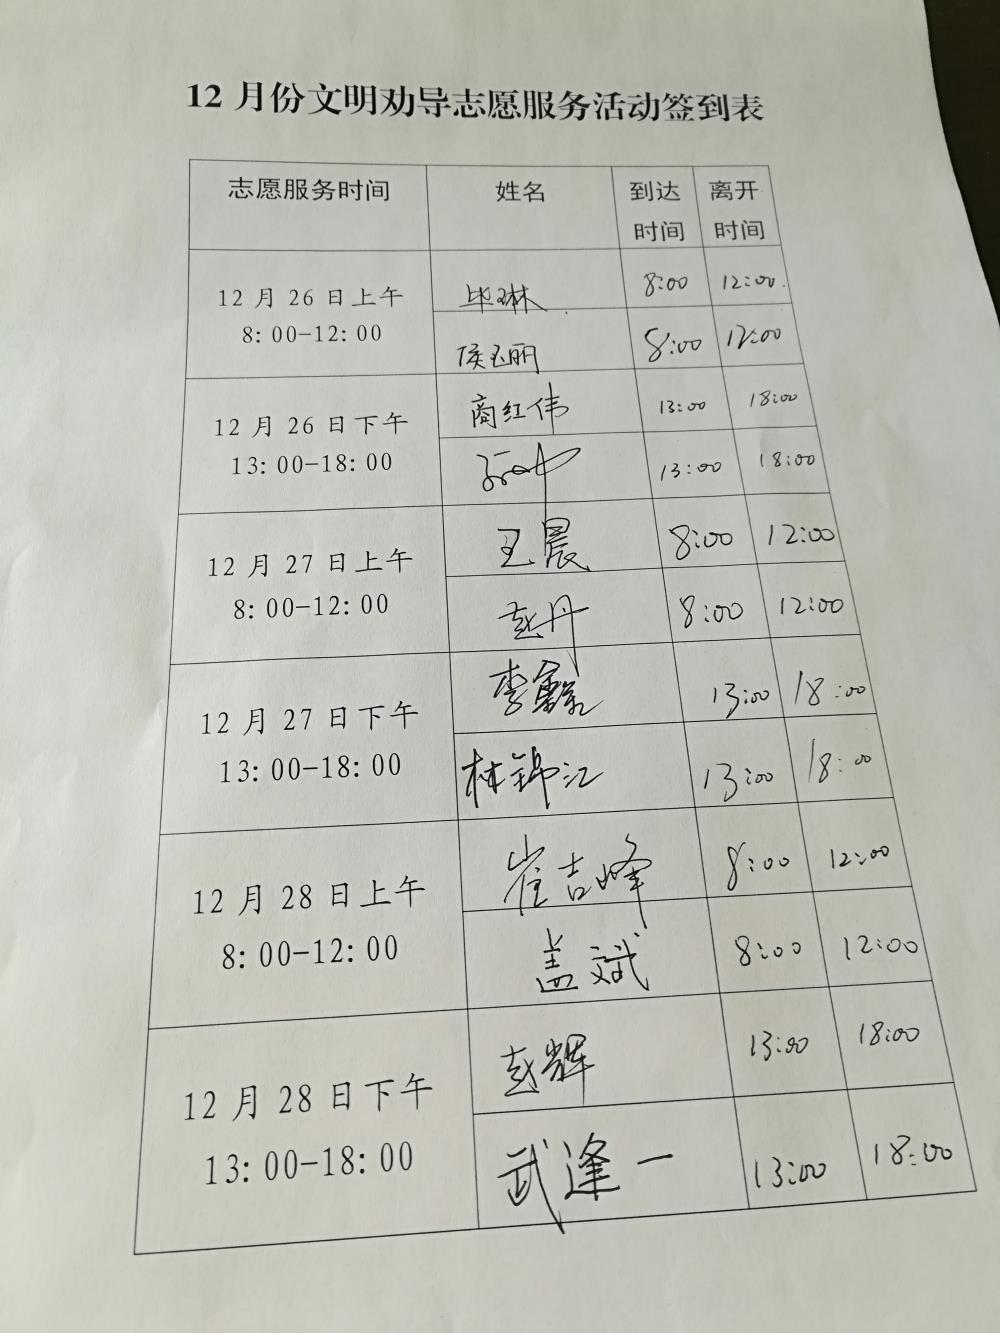 12月份文明劝导志愿服务活动签到表
志愿服务时间 姓名 到达时间 离开时间
12月26日上午 8:00-12:00
毕琳 8:00 12:00
侯玉丽 8:00 12:00
12月26日下午 13:00-18:00
商红伟 13:00 18:00
13:00 18:00
12月27日上午 8:00-12:00
王晨 8:00 12:00
彭丹 8:00 12:00
12月27日下午 13:00-18:00
李 13:00 18:00
林锦江 13:00 18:00
12月28日上午 8:00-12:00
崔吉峰 8:00 12:00
盖斌 8:00 12:00
12月28日下午 13:00-18:00
辉 13:00 18:00
武逢一 13:00 18:00